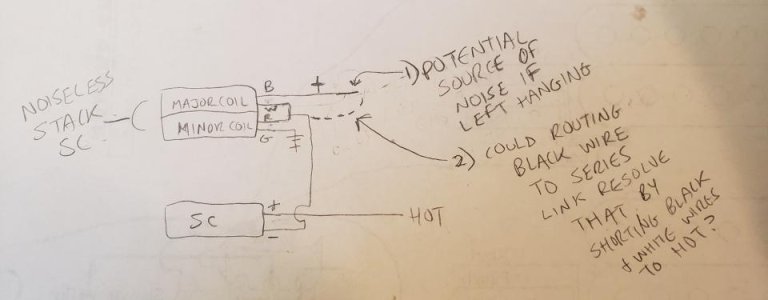 NOISELESS
STACK
SC
B
+
MAJOR COIL
W
R
MINOR COIL
G
1) POTENTIAL
SOURCE OF
NOISE IF
LEFT HANGING
2) COULD ROUTING
BLACK WIRE
TO SERIES
LINK RESOLVE
THAT BY
SHORTING BLACK
+ WHITE WIRES
TO HOT?
SC
+
-
HOT